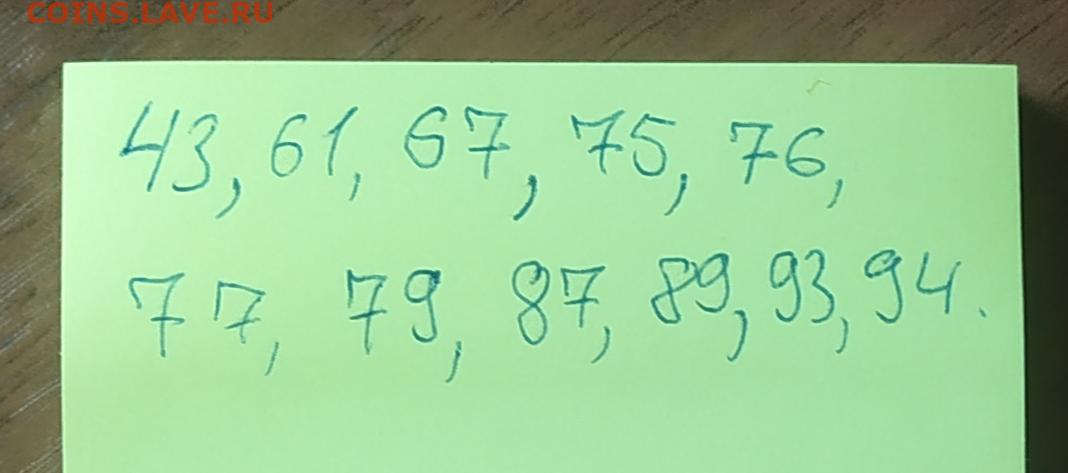 COINS.LAVE.RU
43, 61, 67, 75, 76,
77, 79, 87, 89, 93, 94.